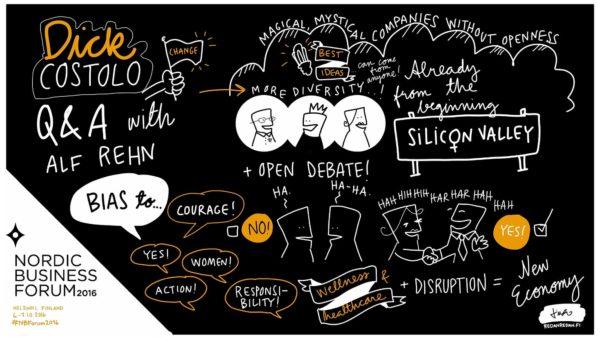 Dick
COSTOLO
CHANGE
Q&A with
ALF REHN
MAGICAL MYSTICAL COMPANIES WITHOUT OPENNESS
BEST
IDEAS
can come
from
anyone!
MORE DIVERSITY..!
Already
from the
beginning
SILICON VALLEY
+ OPEN DEBATE!
BIAS to...
COURAGE!
YES!
WOMEN!
ACTION!
RESPONSI-
BILITY!
NO!
HA.
HA-HA.
HAH HIHHIH HAR HAR HAH
HAH
YES!
Wellness &
healthcare
+ DISRUPTION =
New
Economy
NORDIC
BUSINESS
FORUM 2016
HELSINKI, FINLAND
#NBForum2016
REDANREDAN.FI